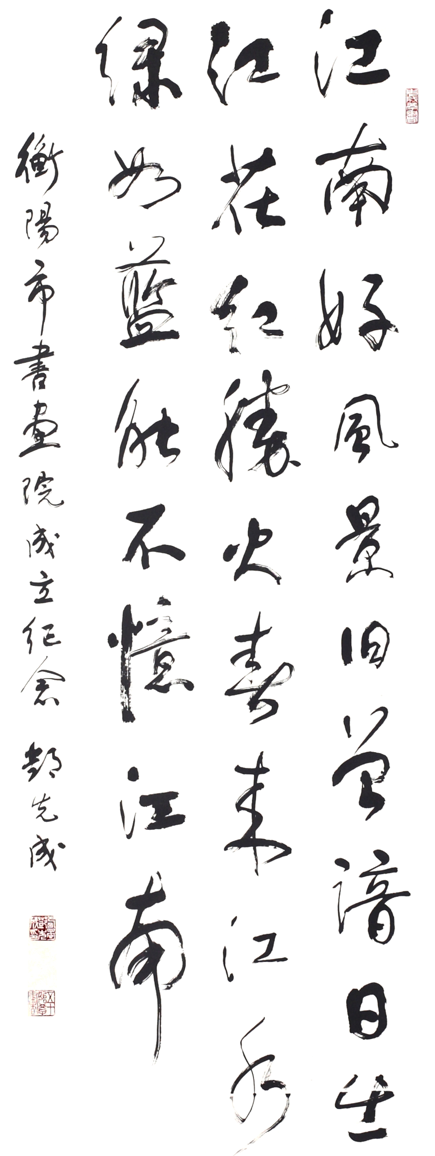 江南好風景旧曾諳日出
江花红勝火春来江水
绿如藍能不憶江南
衡陽市書畫院成立纪念 先成